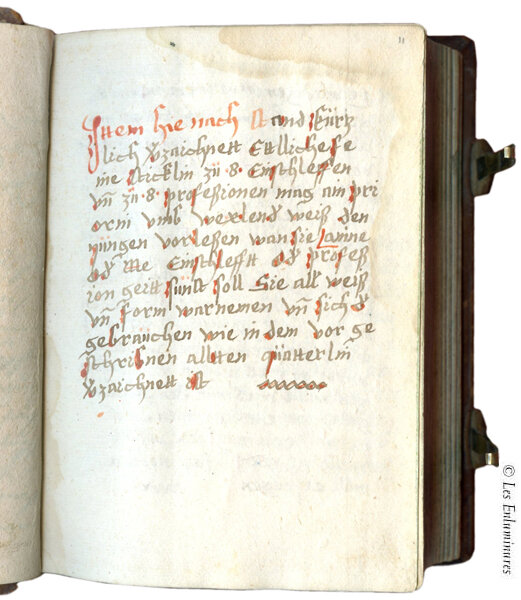 11
Ittem hie nach stand kürtz
lich v̄zaichnett Ettliche fe
ine sticklin zü · 8 · Einschleffen
vn̄ zü · 8 · professionen mag ain pri
orin vmb wexlend weiß den
jüngen vorleßen wan sie
od̄ Einschlefftt od̄ profeß
ion geitt sünst soll Sie all weiß
vn̄ form warnemen vn̄ sich d̄
gebraüchen wie in dem vor ge
schribnen alltten qüatterlin
v̄zaichnett ist
© Les Enluminures